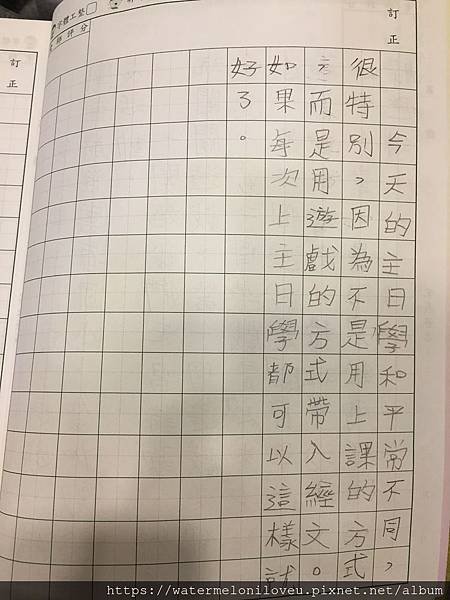 訂正
今天的主日學和平常不同，
很特別，因為不是用上課的方式，
而是用遊戲的方式帶入經文。
如果每次上主日學都可以這樣就
好了。
字體工整
評分
訂正
https://watermeloniloveu.pixnet.net/album